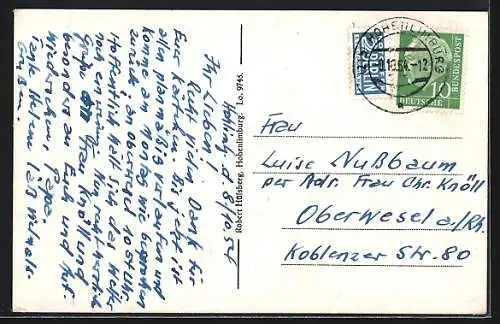 Hohenlbg. d. 8/10.54
Ihr Lieben!
Recht vielen Dank für
Eure Karten. Bis jetzt ist
alles planmäßig verlaufen und
komme am Montag wie besprochen
zurück, an Oberwesel 1054 Uhr.
Hoffentlich hält sich das Wetter
noch. Nun Herzlichste
Grüße an Frau Knöll und
besonders an Euch und Auf-
wiedersehen, Papa.
Tante Helene läßt vielmals
Grüßen.
Robert Hülsberg, Hohenlimburg. Lo. 9746.
HOHENLIMBURG
10.54.-12
10
DEUTSCHE
BUNDESPOST
NOTOPFER
Frau
Luise Nußbaum
per Adr. Frau Chr. Knöll
Oberwesel a/Rh.
Koblenzer Str. 80